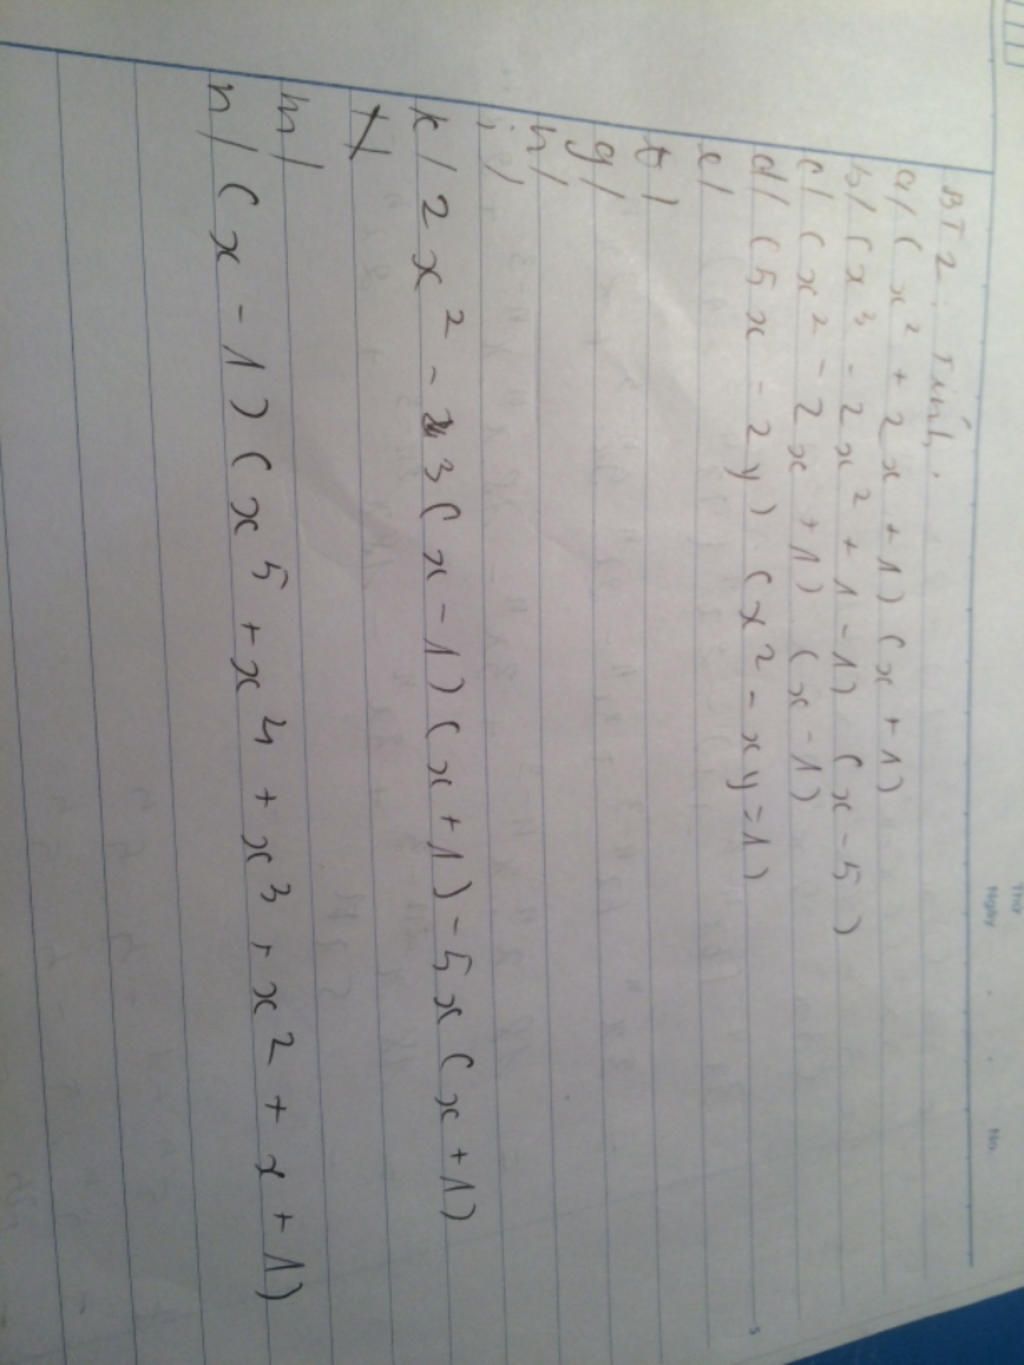 Thứ
Ngày
No.
BT2: Tính:
a/ (x² + 2x + 1) (x + 1)
b/ (x³ - 2x² + 1 - 1) (x - 5)
c/ (x² - 2x + 1) (x - 1)
d/ (5x - 2y) (x² - xy = 1)
e/
f/
g/
h/
i/
k/ 2x² - 3(x - 1)(x + 1) - 5x(x + 1)
l/
m/
n/ (x - 1)(x⁵ + x⁴ + x³ + x² + x + 1)
5